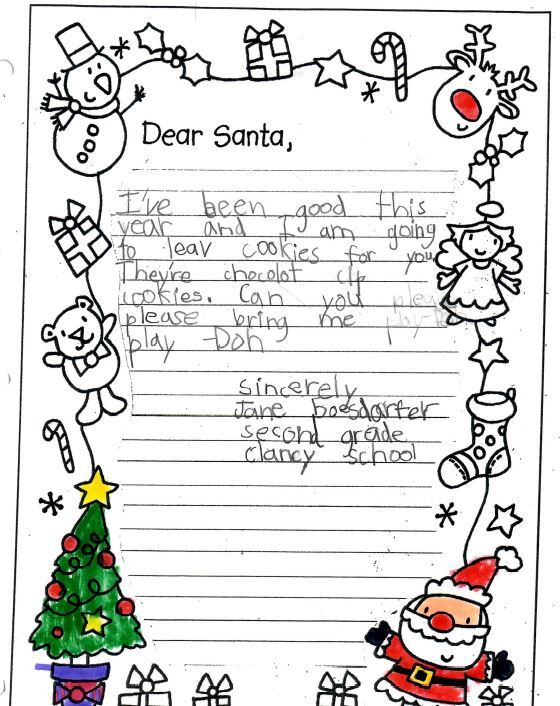 Dear Santa,
I've been good this
year and I am going
to leav cookies for you
They're chocolot cip
cookies. Can you plea
please bring me play-D
play Doh
sincerely
Jane boesdarter
second grade
clancy school